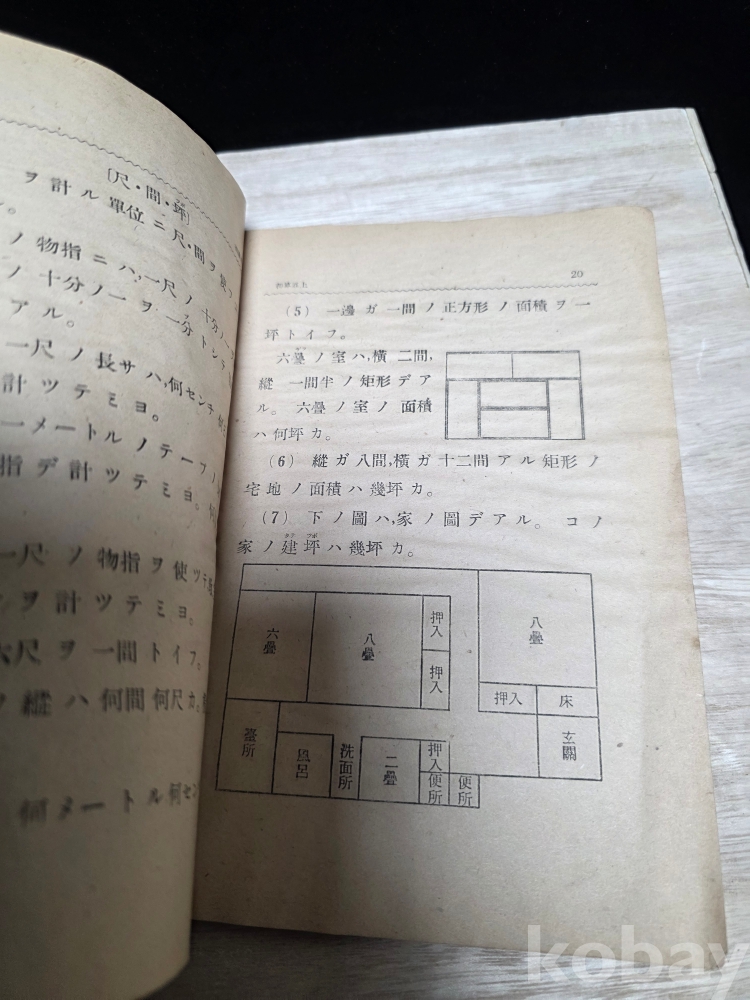 〔尺・間・坪〕
ヲ計ル單位ニ尺・間ヲ
ノ物指ニハ,一尺ノ十分ノ
ノ十分ノ一ヲ一分トン
アル。
一尺ノ長サハ,何センチ
計ツテミヨ。
一メートルノテープ
指デ計ツテミヨ。
一尺ノ物指ヲ使ツテ
ヲ計ツテミヨ。
六尺ヲ一間トイフ。
縱ハ何間何尺カ。
何メートル何セン
20
(5) 一邊ガ一間ノ正方形ノ面積ヲ一
坪トイフ。
六疊ノ室ハ,橫二間,
縱一間半ノ矩形デア
ル。六疊ノ室ノ面積
ハ何坪カ。
(6) 縱ガ八間,橫ガ十二間アル矩形ノ
宅地ノ面積ハ幾坪カ。
(7) 下ノ圖ハ,家ノ圖デアル。コノ
タテ ツボ
家ノ建坪ハ幾坪カ。
六疊
八疊
押入
押入
八疊
押入
床
臺所
風呂
洗面所
二疊
押入
便所
便所
玄關
kobay